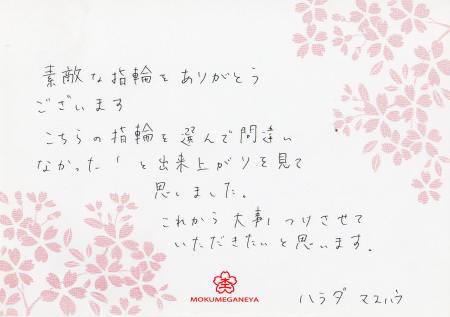 素敵な指輪をありがとう
ございます
こちらの指輪を選んで間違い
なかった！と出来上がりを見て
思いました。
これから大事につけさせて
いただきたいと思います。
MOKUMEGANEYA
ハラダ